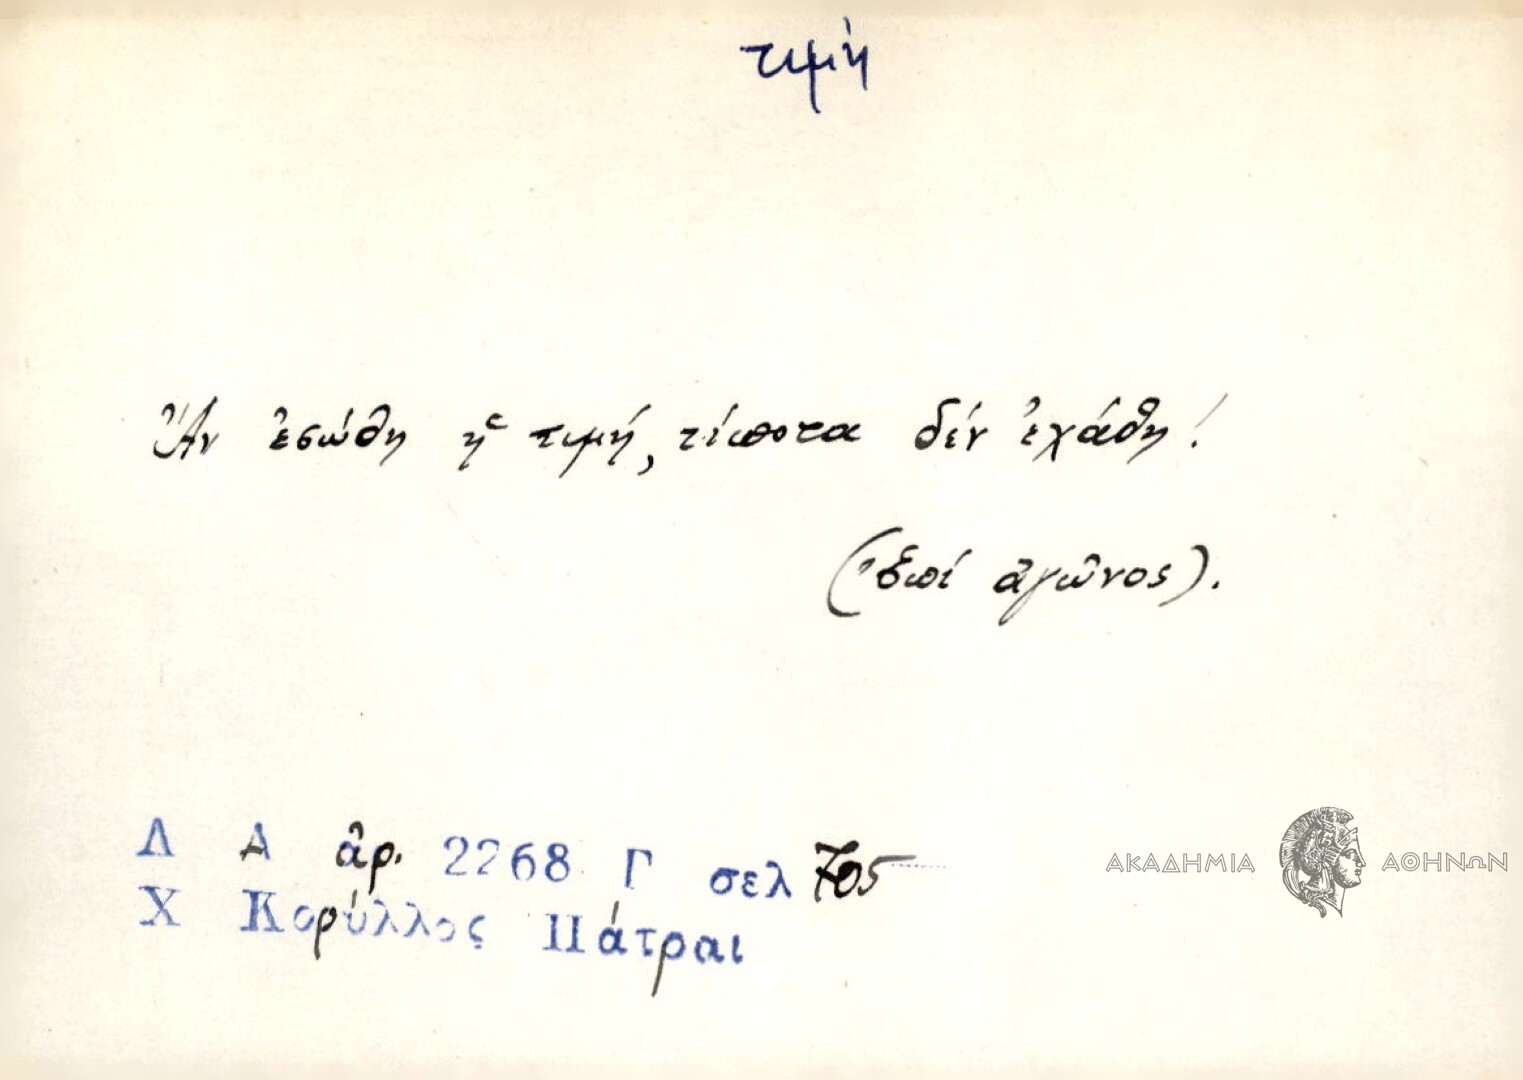 τιμή
Ἂν ἐσώθη ἡ τιμή, τίποτα δέν ἐχάθη!
(Ἐπί ἀγῶνος).
Λ Α ἀρ. 2268 Γ σελ 705
Χ Κορύλλος Πάτραι
ΑΚΑΔΗΜΙΑ ΑΘΗΝΩΝ